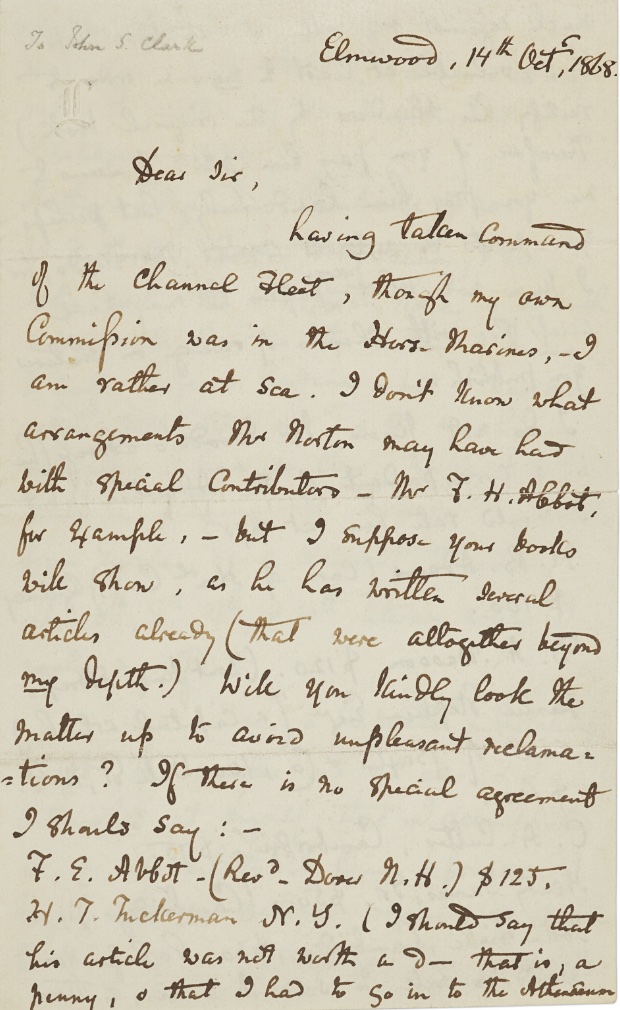 To John S. Clark
L
Elmwood, 14th Octr, 1868.
Dear Sir,
having taken command
of the Channel Fleet, though my own
Commission was in the Horse Marines, – I
am rather at sea. I don't know what
arrangements Mr Norton may have had
with special Contributors – Mr F. H. Abbot,
for example, – but I suppose your books
will show, as he has written several
articles already (that were altogether beyond
my depth.) Will you kindly look the
matter up to avoid unpleasant reclama=
=tions? If there is no special agreement
I should say: –
F. E. Abbot – (Revd – Dover N.H.) $125.
H. T. Tuckerman N.Y. (I should say that
his article was not worth a d— that is, a
penny, & that I had to go in to the Athenaeum